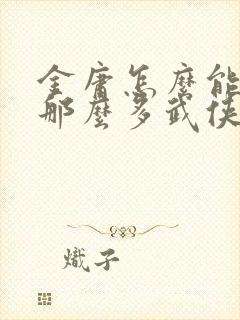 金庸怎麼能
那麼多武俠
熾子